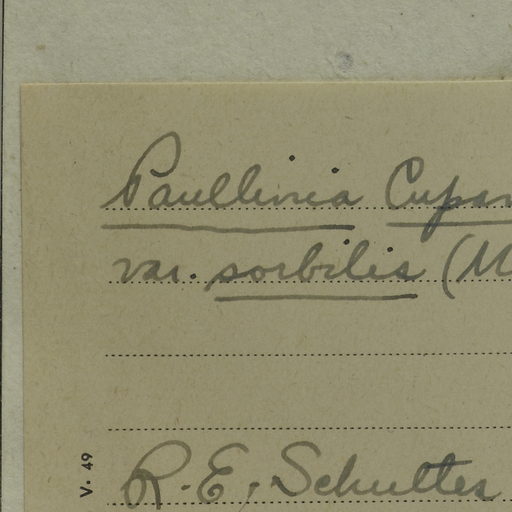 Paullinia Cupan
var. sorbilis (M
R. E. Schultes
V. 49